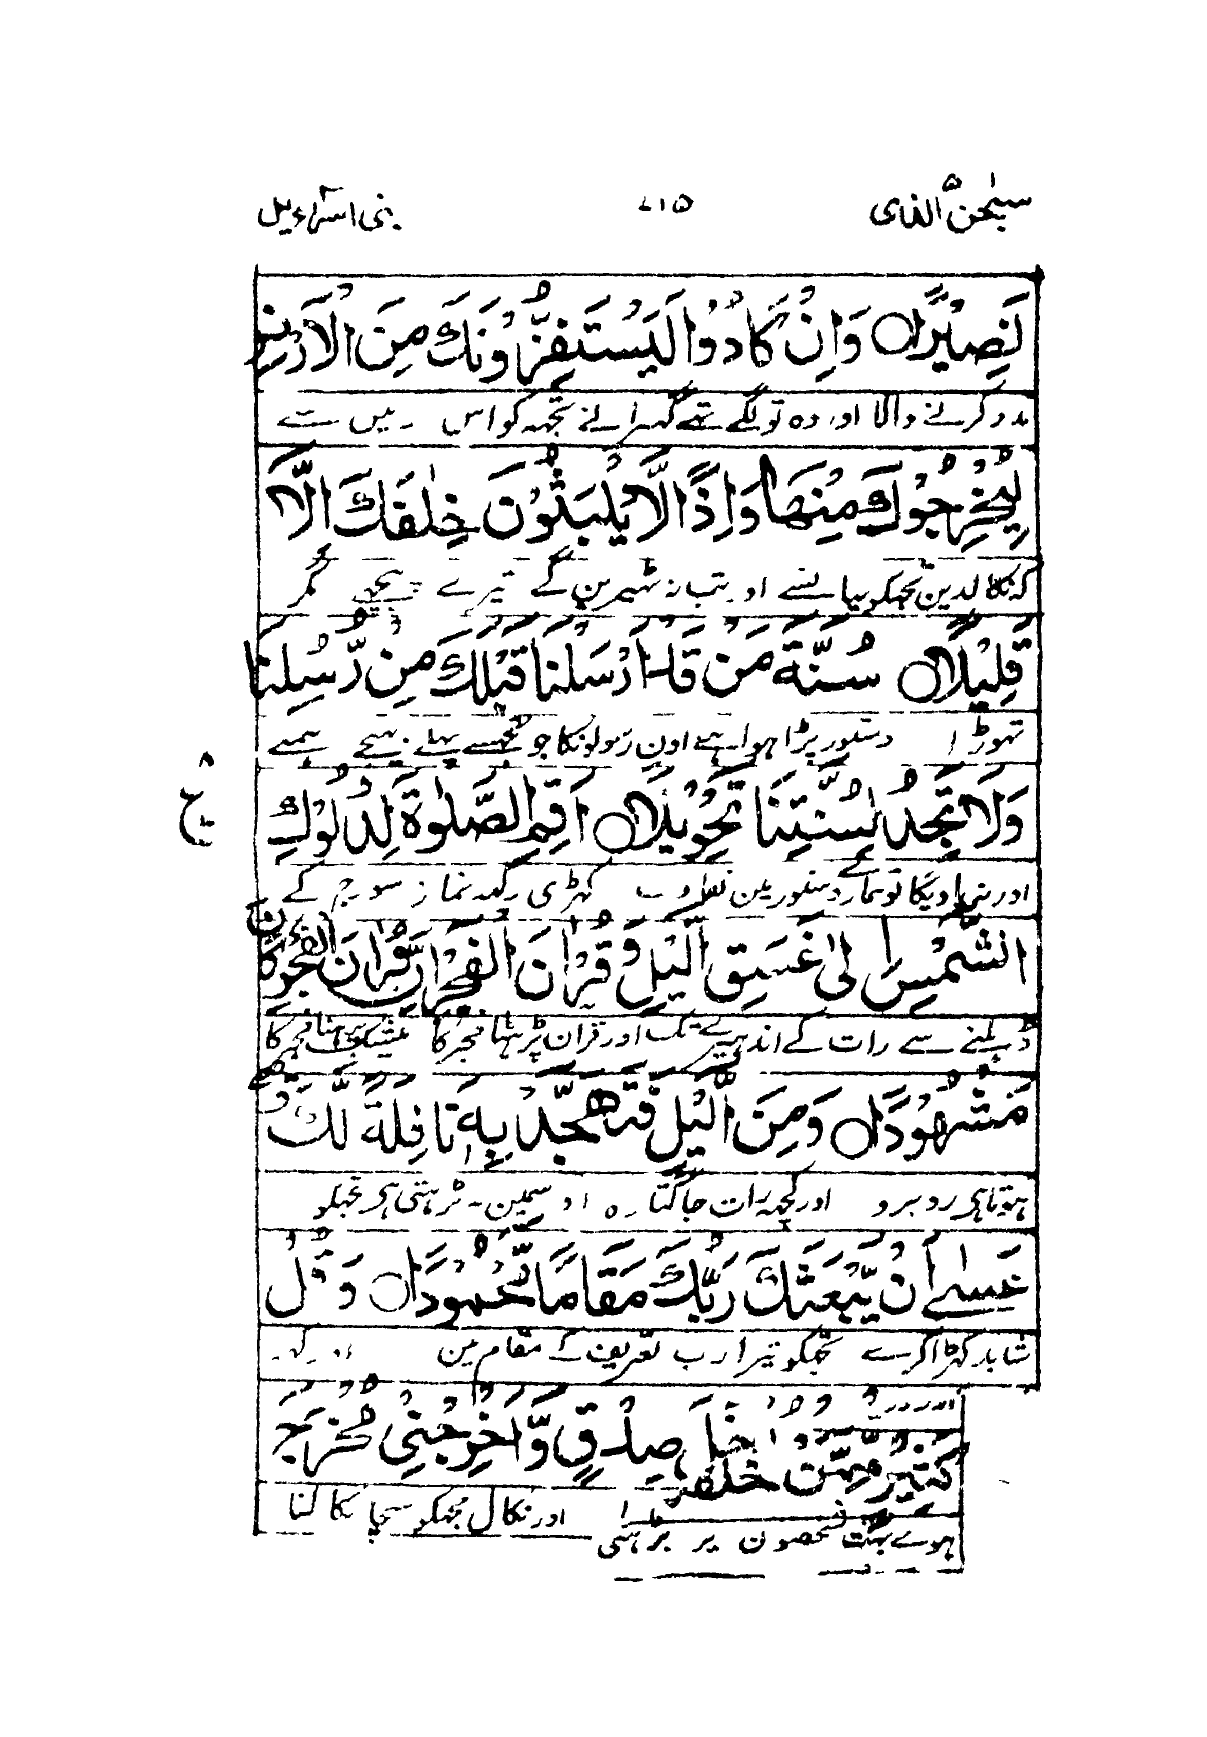 سبحٰن الذی ۱۵ ۷۱۵ بنی اسرآءیل ۱۷
نَصِیْرًا ۝ وَاِنْ كَادُوْا لَیَسْتَفِزُّوْنَكَ مِنَ الْاَرْضِ
مدد کرنے والا اور وہ تو لگے تھے گہبرانے تجہہ کو اس زمین سے
لِیُخْرِجُوْكَ مِنْهَا وَاِذًا لَّا یَلْبَثُوْنَ خِلٰفَكَ اِلَّا
کہ نکالدین تجہکو یہا نسے اور تب نہ ٹہیرین گے تیرے پیچھے مگر
قَلِیْلًا ۝ سُنَّةَ مَنْ قَدْ اَرْسَلْنَا قَبْلَكَ مِنْ رُّسُلِنَا
تہوڑا دستور پڑا ہوا ہے اون رسولونکا جو تجہسے پہلے بہیجے ہمنے
وَلَا تَجِدُ لِسُنَّتِنَا تَحْوِیْلًا ۝ اَقِمِ الصَّلٰوةَ لِدُلُوْكِ
۸ ع
اور نہ پاویگا تو ہمارے دستور مین تفاوت کہڑی رکہہ نماز سورج کے
الشَّمْسِ اِلٰی غَسَقِ الَّیْلِ وَ قُرْاٰنَ الْفَجْرِ اِنَّ قُرْاٰنَ الْفَجْرِ كَانَ
ڈہلنے سے رات کے اندہیرے تک اور قران پڑہنا فجر کا بیشک پڑہنا فجر کا
مَشْهُوْدًا ۝ وَمِنَ الَّیْلِ فَتَهَجَّدْ بِهٖ نَافِلَةً لَّكَ
ہوتا ہی روبرو اور کچہہ رات جاگتا رہ اوسمین بڑہتی ہی تجہکو
عَسٰۤی اَنْ یَّبْعَثَكَ رَبُّكَ مَقَامًا مَّحْمُوْدًا ۝ وَ قُلْ
شاید کہڑا کرے تجہکو تیرا رب تعریف کے مقام مین اور کہہ
صِدْقٍ وَّاَخْرِجْنِیْ مُخْرَجَ
كَثِیْرٍ مِّمَّنْ خَلَقْ
اور نکال مجہکو سچا نکالنا
ہوے بہت شخصون پر بڑہتی